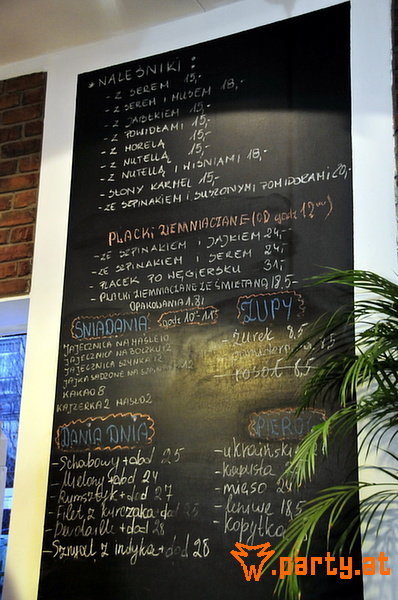 * NALEŚNIKI :
- Z SEREM 15,-
- Z SEREM I MUSEM 18,-
- Z JABŁKIEM 15,-
- Z POWIDŁAMI 15,-
- Z MORELĄ 15,-
- Z NUTELLĄ 15,-
- Z NUTELLĄ I WIŚNIAMI 18,-
- SŁONY KARMEL 15,-
- ZE SZPINAKIEM I SUSZONYMI POMIDORAMI 20,-
PLACKI ZIEMNIACZANE (OD godz 12
- ZE SZPINAKIEM I JAJKIEM 24,-
- ZE SZPINAKIEM I SEREM 24,-
- PLACEK PO WĘGIERSKU 31,-
- PLACKI ZIEMNIACZANE ZE ŚMIETANĄ 18,5-
OPAKOWANIA 1.81
ŚNIADANIA godz 10-11
JAJECZNICA NA MAŚLE 10
JAJECZNICA NA BOCZKU 12
JAJECZNICA SZYNKA 12
JAJKA SADZONE NA 12
KAKAO 8
KAJZERKA 2 MASŁO 2
ZUPY
- żurek 8,5
- pomidorowa 8,5
- rosół 6,5
DANIA DNIA
- Schabowy + dod 25
- Mielony + dod 24
- Rumsztyk + dod 27
- Filet z kurczaka + dod 25
- + dod 28
- Sznycel z indyka + dod 28
PIEROGI
- ukraińskie
- kapusta
- mięso 24
- leniwe 18,5
- kopytka
w.party.at